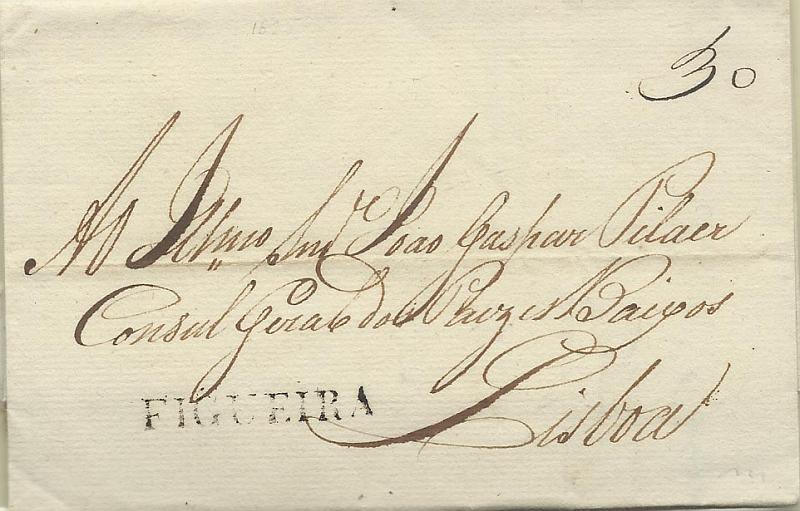 30
Ao Illmo Snr João Gaspar Pilaer
Consul Geral dos Paizes Baixos
Lisboa
FIGUEIRA